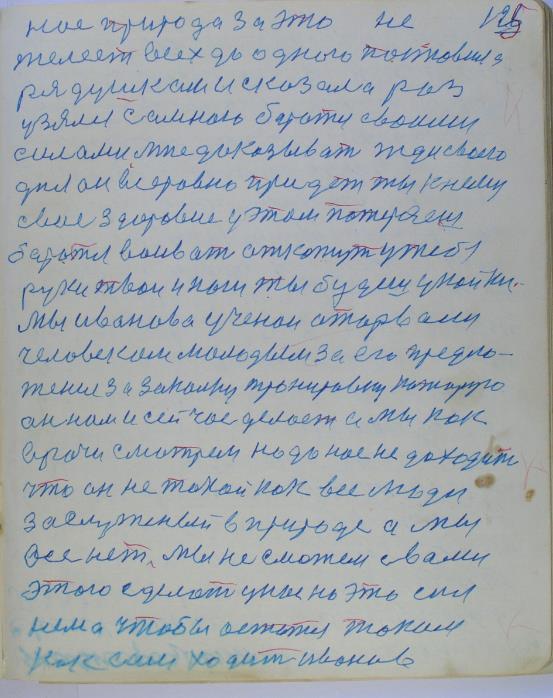 ное природа за это не 125
желеет всех до одного поставила
рядушкам и сказала раз
узяли самного баротся своими
силами мне доказывает жди своего
дня он всеровно придет ты к нему
свое здоровие у этом потеряеш
баротся воиват откожут у тебя
руки твои и ноги ты будеш у койки.
Мы иванова ученои оторвали
человеком молодым за его предло-
жение за закалку тренировку которую
он нам и сейчас делает а мы как
врачи смотрем но до нас не доходит
что он не такой как все люди
заслуженый в природе а мы
все нет, мы не сможем с вами
этого сделат у нас на это сил
нема чтобы остатся таким
как сам ходит иванов